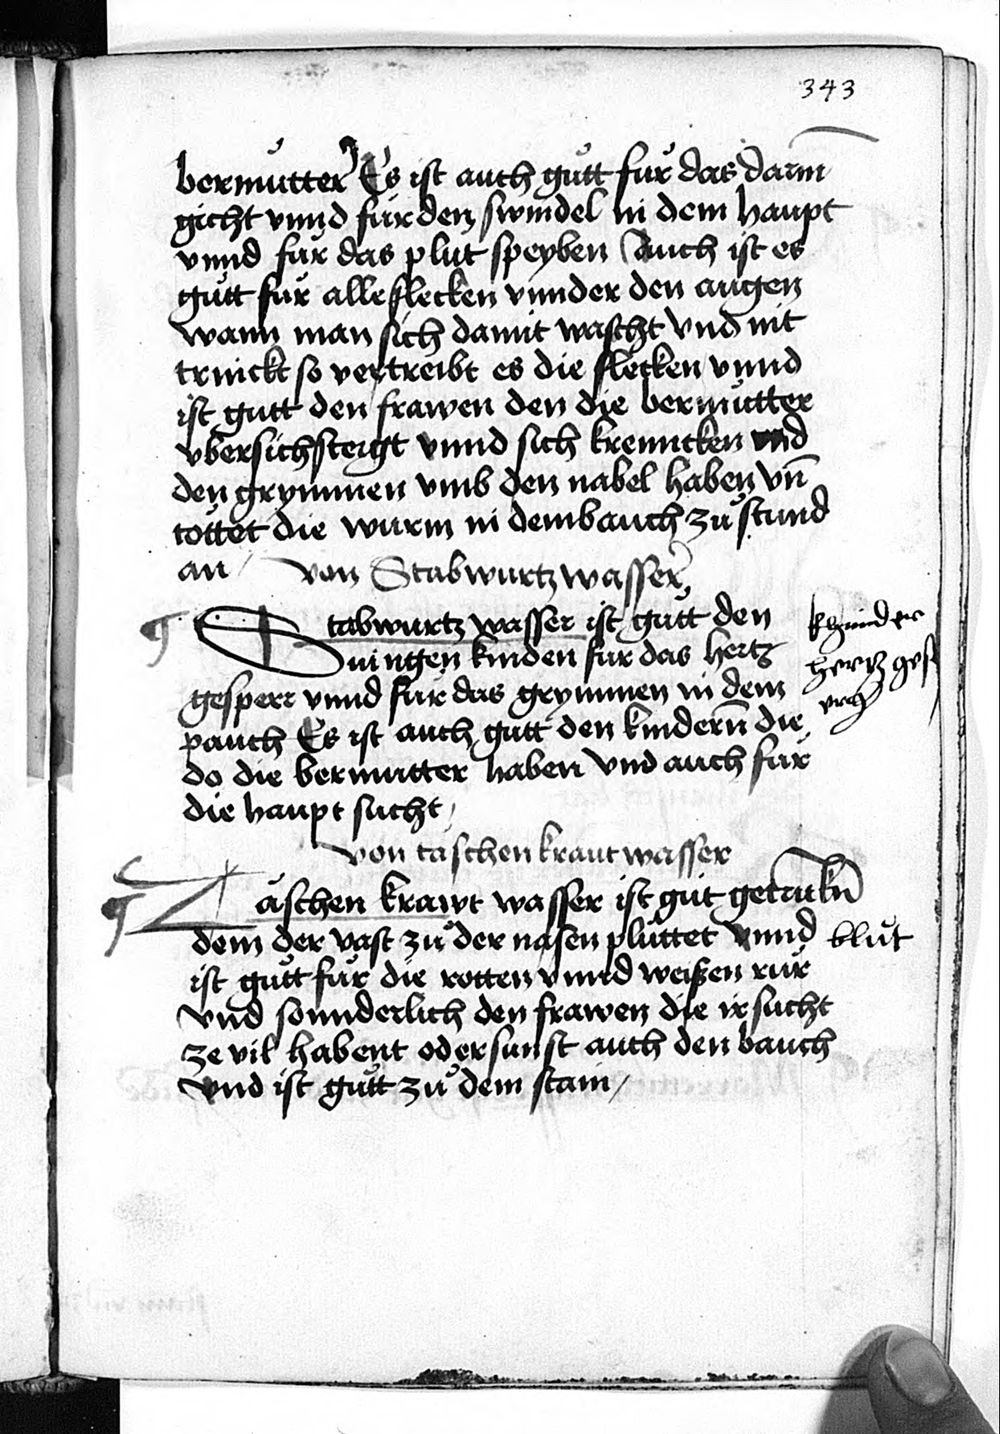 343
bermůtter Es ist auch gůtt fůr das darm
gicht vnnd fůr den swindel in dem haupt
vnnd fůr das plůt speyben Auch ist es
gůtt fůr alle flecken vnnder den augen
wann man sich damit wascht vnd nit
trinckt so vertreibt es die flecken vnnd
ist gutt den frawen den die bermůtter
vbersichsteigt vnnd sich krenncken vnd
den grymmen vmb den nabel haben vn̄
tottet die wurm in dem bauch zů stund
an / von Stabwurtz wasser
Stabwurtz wasser ist gůtt den
iungen kinden fur das hertz
gesperr vnnd fůr das grymmen in dem
pauch Es ist auch gůtt den kindern̄ die
do die bermutter haben vnd auch fůr
die haupt sucht /
khinder
hertz gesp
von taschenkraut wasser
Taschen krawt wasser ist gůt getrūkn̄
dem der vast zů der nasen plůttet vnnd
blůt
ist gůtt fůr die rotten vnnd weißen růr
vnd sonnderlich den frawen die ir sucht
ze vil habent oder sunst auch den bauch
vnd ist gůtt zů dem stain /